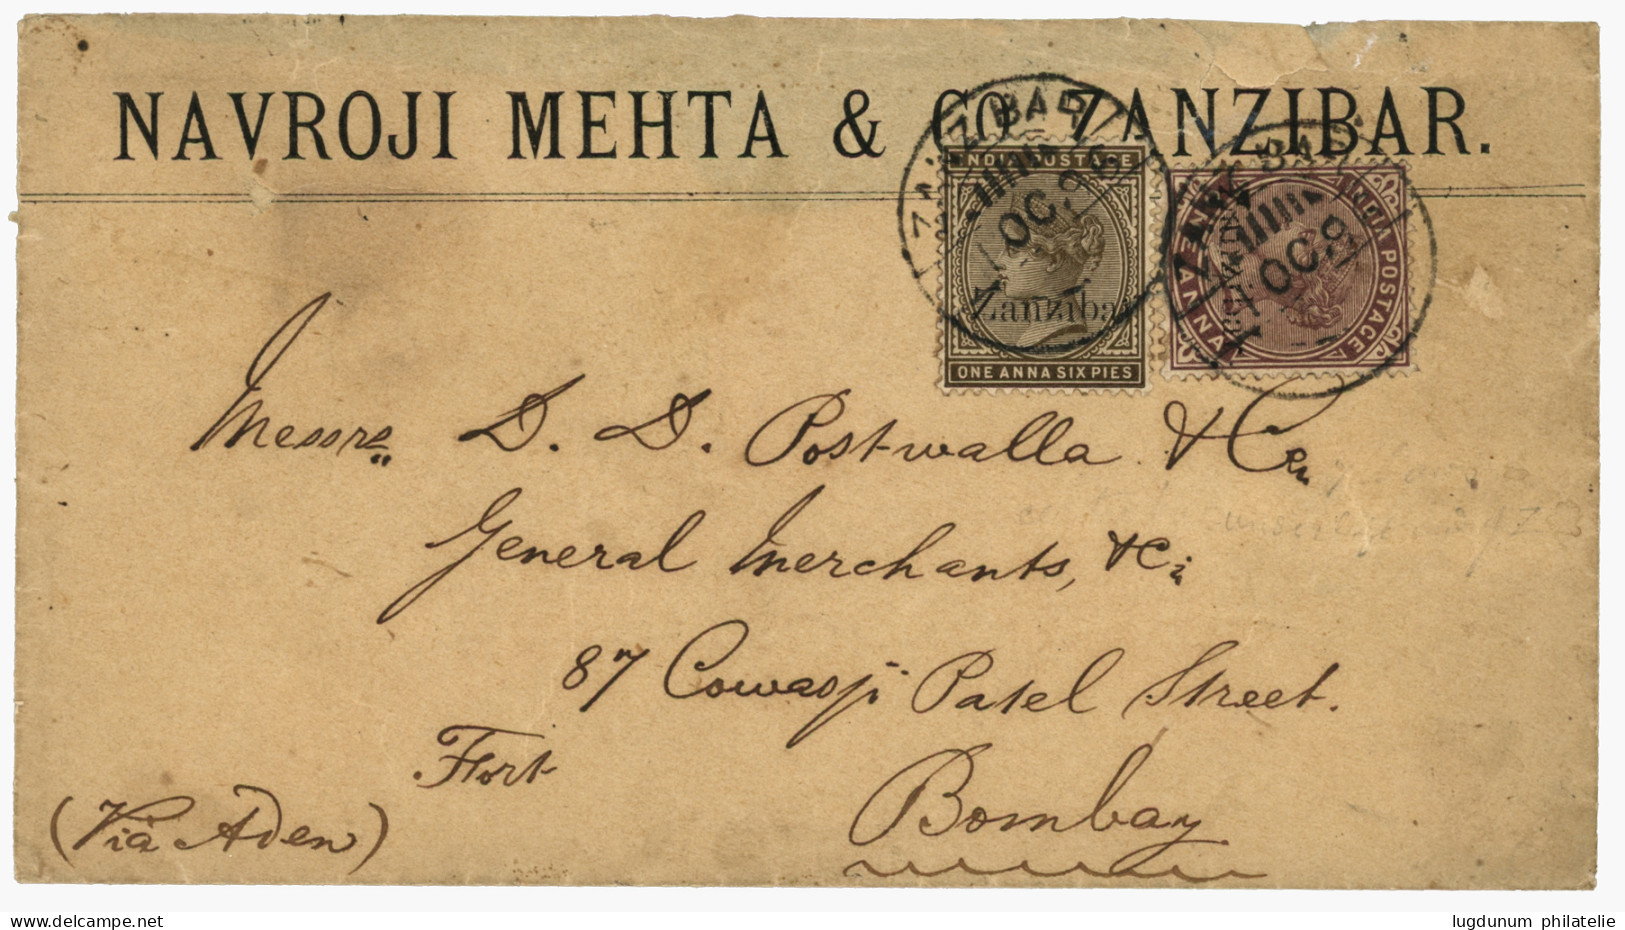 NAVROJI MEHTA & CO ZANZIBAR.
ZANZIBAR
OC 9
INDIA POSTAGE
Zanzibar
ONE ANNA SIX PIES
ZANZIBAR
OC 9
INDIA POSTAGE
ONE ANNA
Messrs D. D. Postwalla & Co
General Merchants, &c
87 Cowasji Patel Street.
Fort
Bombay
(Via Aden)
www.delcampe.net
lugdunum philatelie